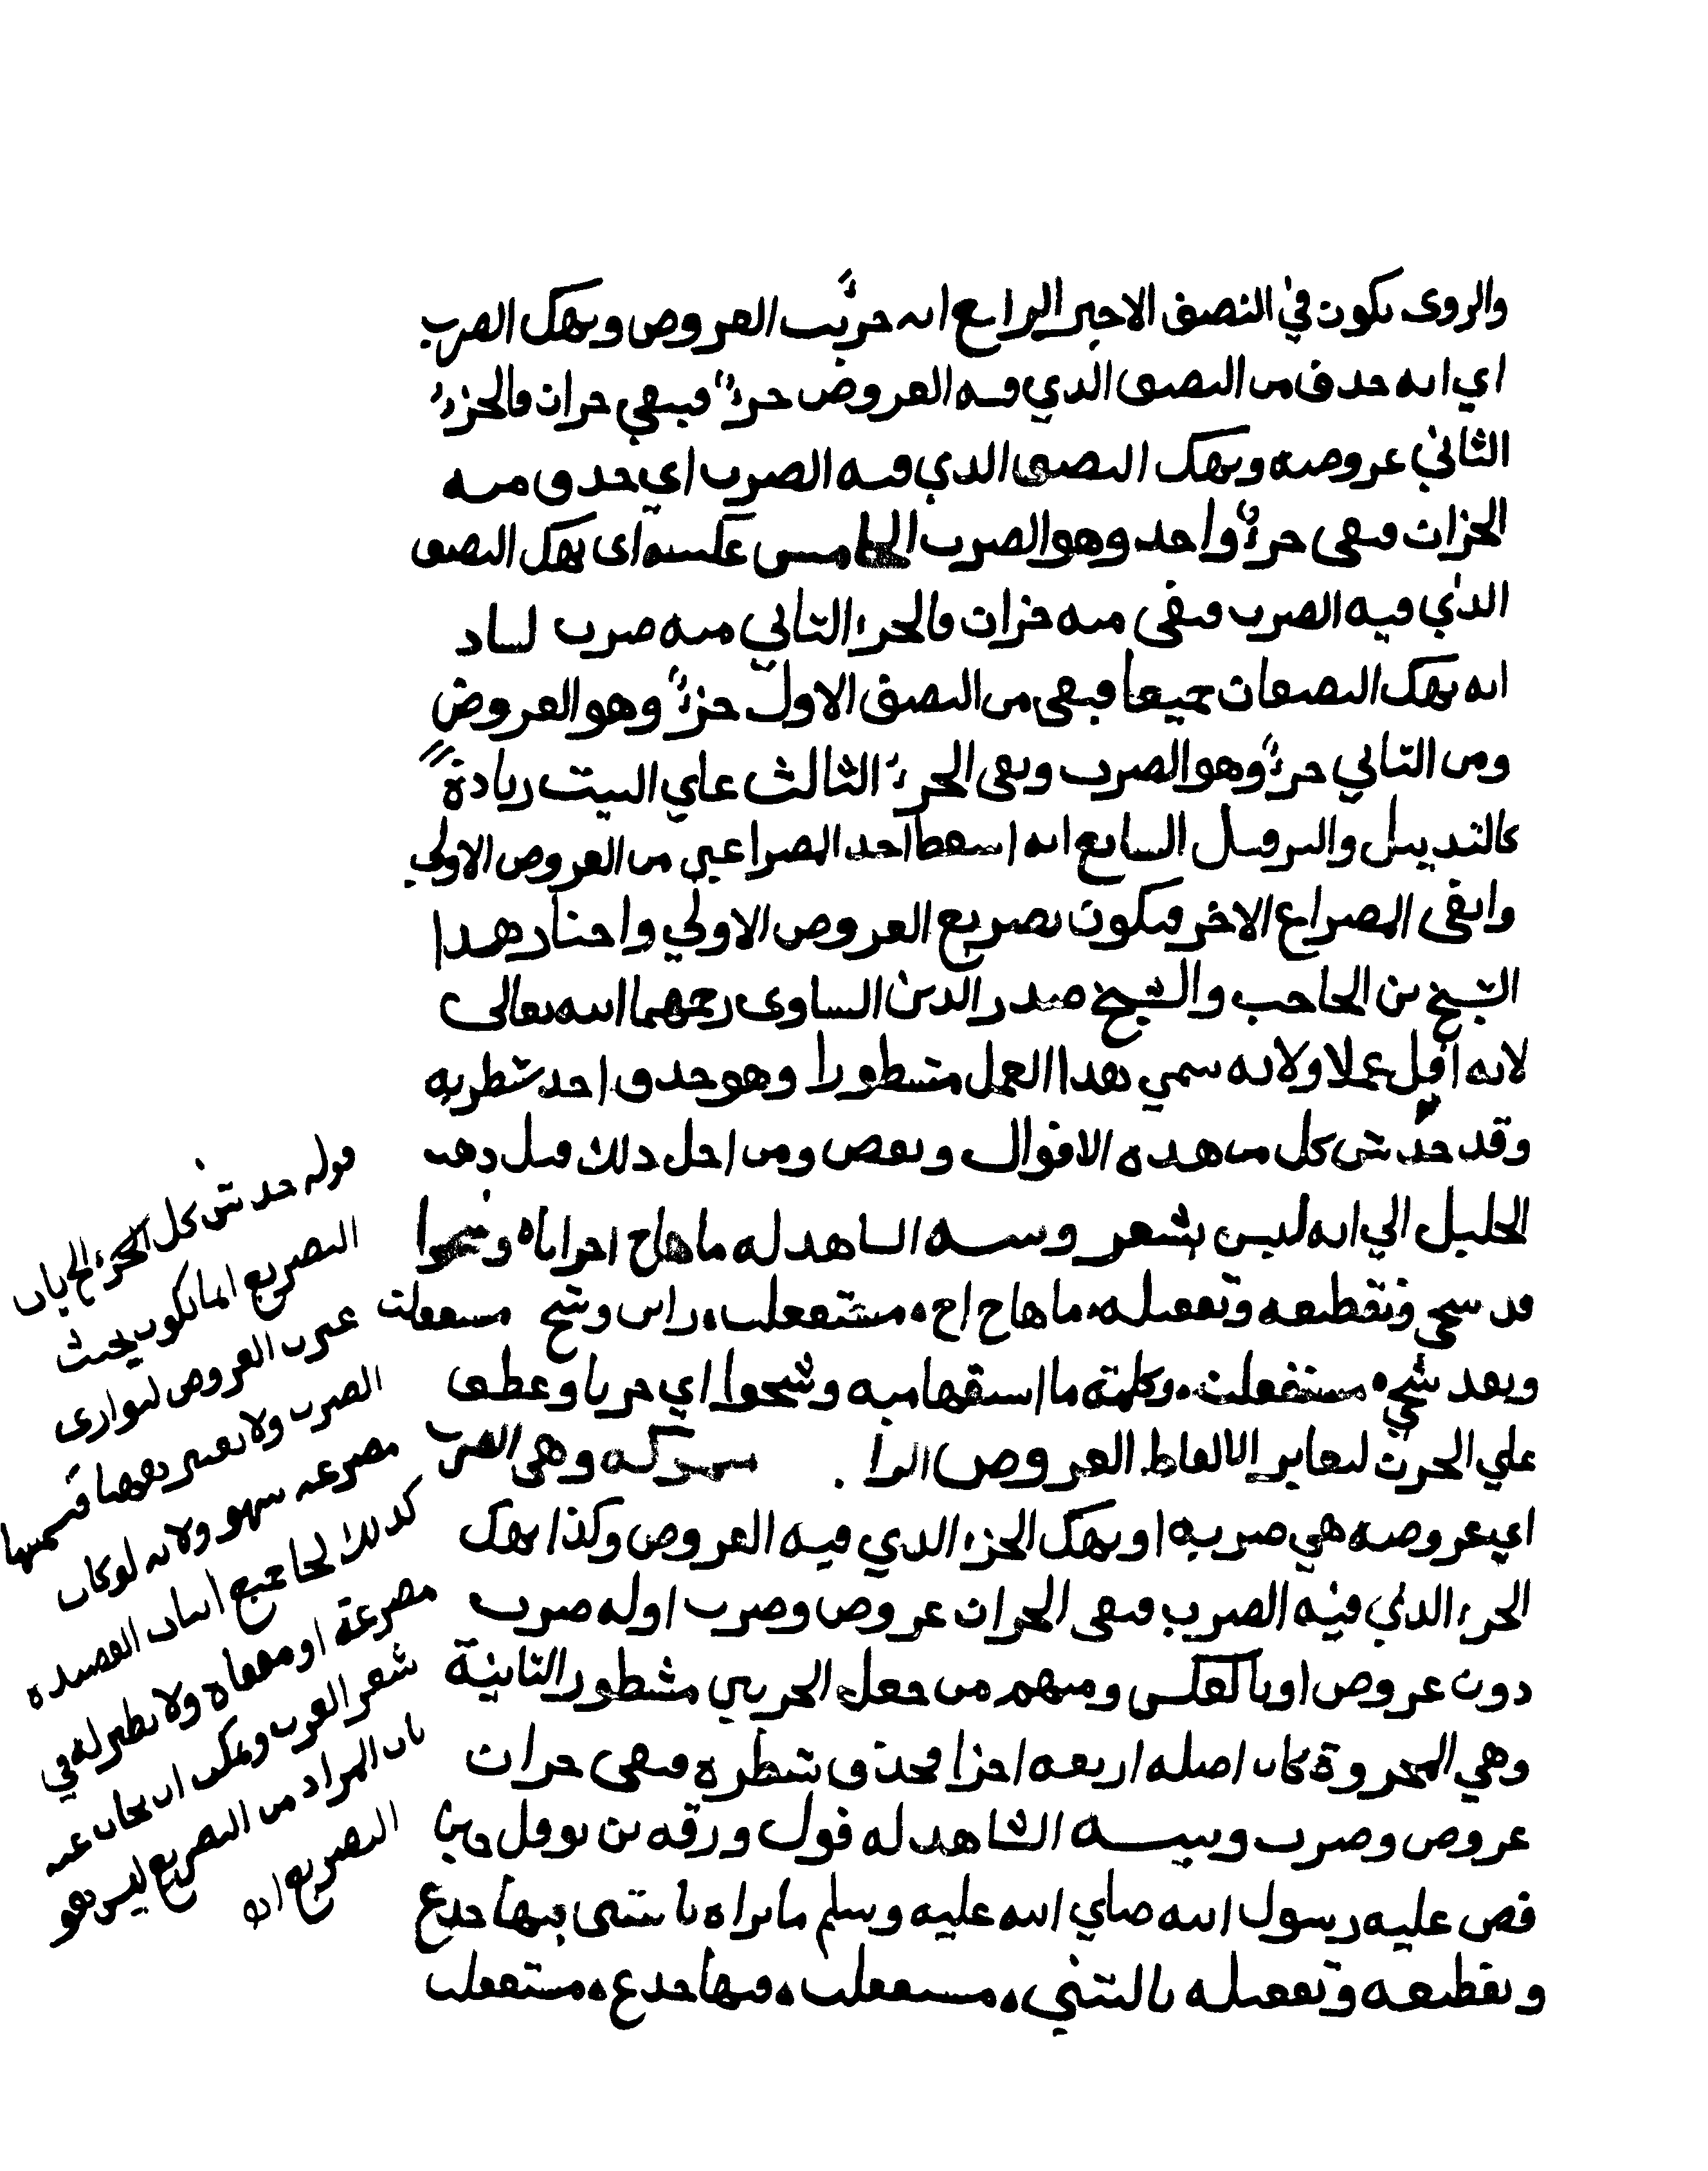 والروى يكون في النصف الاخير الرابع انه جزيت العروض وبهك الضرب
اي انه حذف من النصف الذي فيه العروض جزءٌ فيبقي جزان فالجزء
الثاني عروضه وبهك النصف الذي فيه الضرب اي حذف منه
الجزان فبقى جزءٌ واحد وهو الضرب الخامس عكسه اى بهك النصف
الذي فيه الضرب فبقى منه جزان فالجزء الثاني منه ضرب لساد
انه بهك النصفان جميعا فبقى من النصف الاول جزءٌ وهو العروض
ومن الثاني جزءٌ وهو الضرب وبقى الجزءُ الثالث علي البيت زيادةً
كالتذييل والترفيل السابع انه اسقط احد المصراعين من العروض الاولي
وابقى المصراع الاخر فيكون تصريع العروض الاولي واختار هذا
الشيخ بن الحاجب والشيخ صدر الدين الساوى رحمهما الله تعالى
لانه اقل عملا ولانه سمي هذا العمل مشطورا وهو حذف احد شطريه
وقد خدش كل من هذه الاقوال ونقض ومن اجل ذلك قيل ذهب
الخليل الي انه ليس بشعر وبيته الشاهد له ما هاج احزاناه وشجوا
قد شجي وتقطيعه وتفعيله ما هاج اح ه مستفعلن ه زاتن وشج مستفعلن
ونقد شجي ه مستفعلن ه وكلمة ما استفهاميه وشجوا اي حزنا وعطف
علي الحزن لتغاير الالفاظ العروض الرا . سهوكه وهي الضرب
اي عروضه هي ضربه او بهك الجزء الذي فيه العروض وكذا بهك
الجزء الذي فيه الضرب فبقى الجزان عروض وضرب اوله ضرب
دون عروض او بالعكس ومنهم من جعل الجزين مشطور الثانية
وهي المجزوة كان اصله اربعة اجزا فحذف شطره فبقى جزان
عروض وضرب وبيته الشاهد له قول ورقه بن نوفل حين
قص عليه رسول الله صلي الله عليه وسلم ما يراه يا ليتنى فيها جذع
وتقطيعه وتفعيله يا ليتني ه مستفعلن ه فيها جذع ه مستفعلن
قوله خدش كل الجزء الخ بان
التصريع انما يكون بحيث
غيرت العروض لتوازى
الضرب ولا تغيير ههنا فتسميتها
مصرعه سهو ولانه لو كان
كذلك لجا جميع ابيات القصيده
مصرعة او مقفاه ولا نظير له في
شعر العرب ويمكن ان يجاب عنه
بان المراد من التصريع ليس هو
التصريع